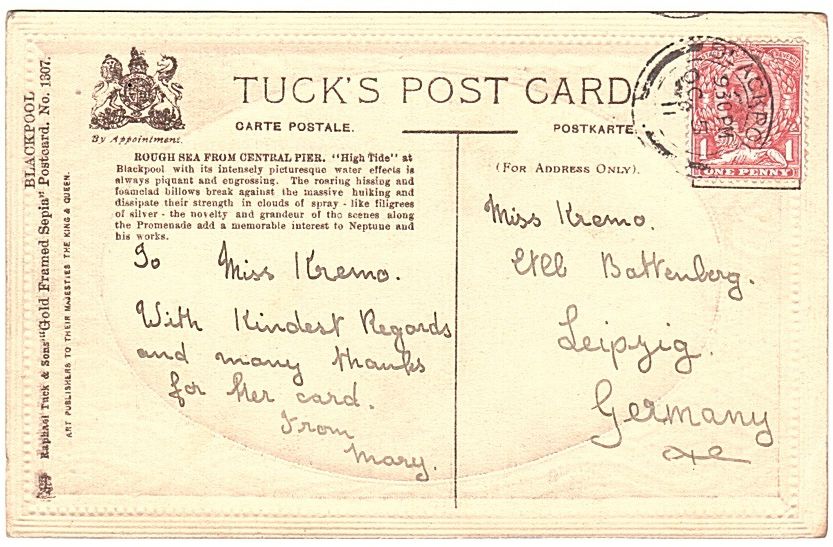 BLACKPOOL
Raphael Tuck & Sons' "Gold Framed Sepia" Postcard, No. 1307.
ART PUBLISHERS TO THEIR MAJESTIES THE KING & QUEEN.
By Appointment.
TUCK'S POST CARD
CARTE POSTALE.
POSTKARTE.
BLACKPO
9.30 PM
OC 5
11
1 1
ONE PENNY
ROUGH SEA FROM CENTRAL PIER. "High Tide" at
Blackpool with its intensely picturesque water effects is
always piquant and engrossing. The roaring hissing and
foamclad billows break against the massive hulking and
dissipate their strength in clouds of spray - like filigrees
of silver - the novelty and grandeur of the scenes along
the Promenade add a memorable interest to Neptune and
his works.
To Miss Kremo.
With Kindest Regards
and many thanks
for her card.
From
Mary.
(FOR ADDRESS ONLY).
Miss Kremo.
Battenberg.
Leipzig.
Germany